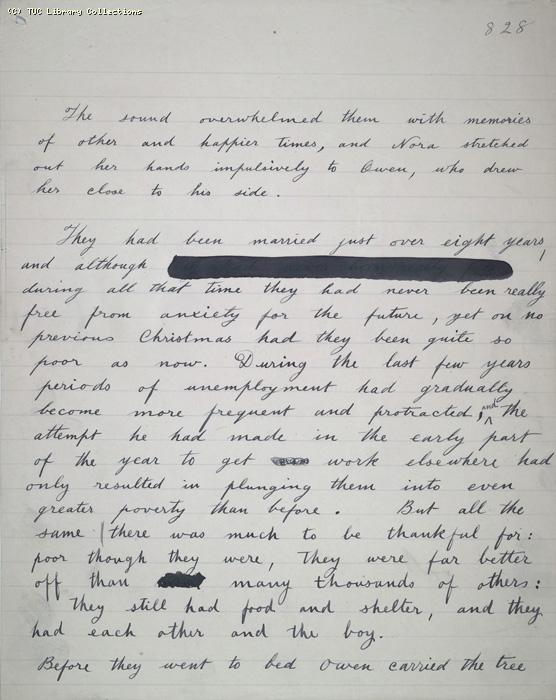 (C) TUC Library Collections
828
The sound overwhelmed them with memories
of other and happier times, and Nora stretched
out her hands impulsively to Owen, who drew
her close to his side.
They had been married just over eight years,
and although
during all that time they had never been really
free from anxiety for the future, yet on no
previous Christmas had they been quite so
poor as now. During the last few years
periods of unemployment had gradually
become more frequent and protracted, and the
attempt he had made in the early part
of the year to get work elsewhere had
only resulted in plunging them into even
greater poverty than before. But all the
same there was much to be thankful for:
poor though they were, They were far better
off than many thousands of others:
They still had food and shelter, and they
had each other and the boy.
Before they went to bed Owen carried the tree